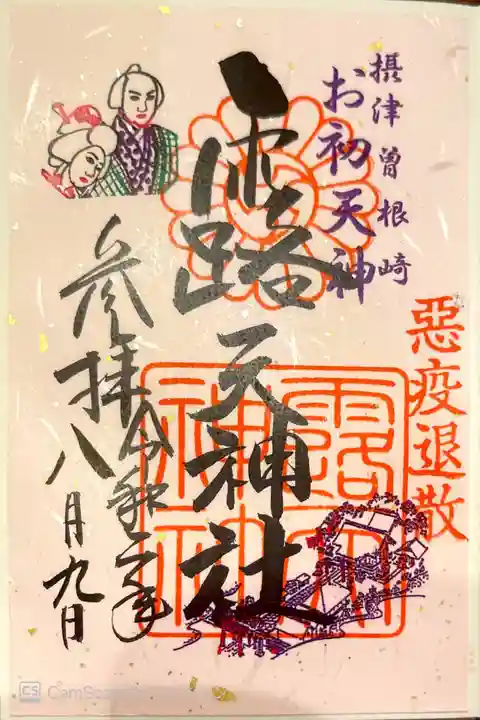 摂津曽根崎
お初天神
惡疫退散
露天神社
露天神社
参拝
令和二年
八月九日
CS CamScanner